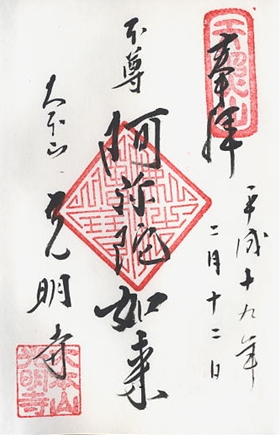 天照山
奉拝
平成十九年
二月十二日
本尊
阿弥陀如来
大本山
光明寺
大本山
光明寺